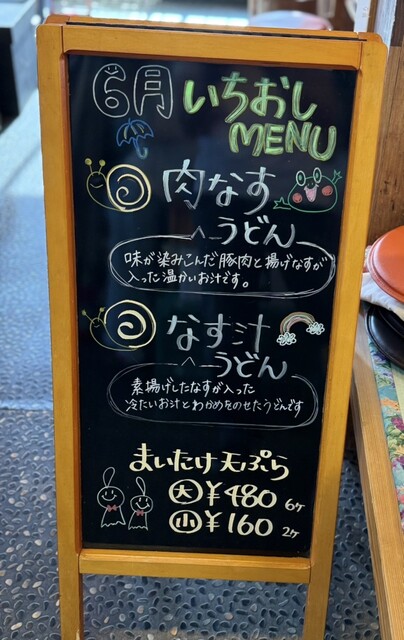 6月 いちおし
MENU
肉なす
うどん
味が染みこんだ豚肉と揚げなすが
入った温かいお汁です。
なす汁
うどん
素揚げしたなすが入った
冷たいお汁とわかめをのせたうどんです
まいたけ天ぷら
大 ¥480 6ヶ
小 ¥160 2ヶ